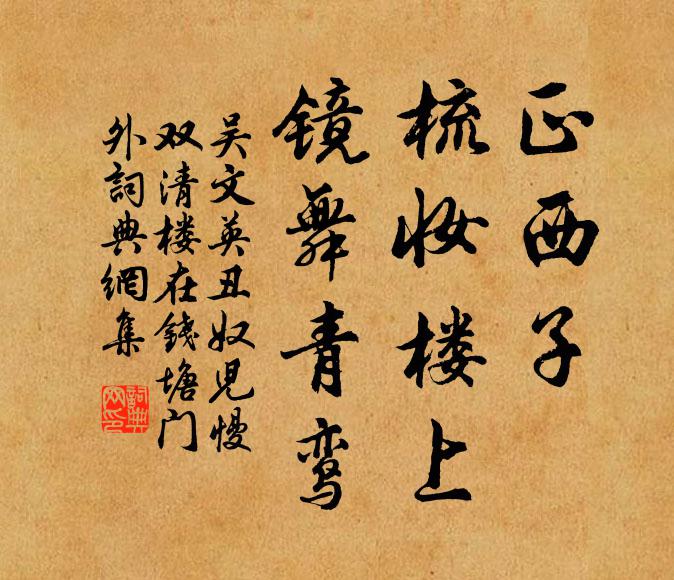 正西子
梳妆楼上
镜舞青鸾
吴文英丑奴儿慢
双清楼在錢塘门
外詞典網集
詞典网印